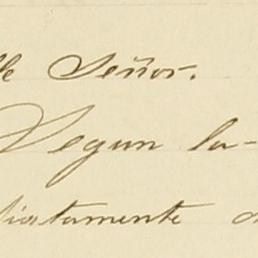 lle Señor.
Segun la-
diatamente